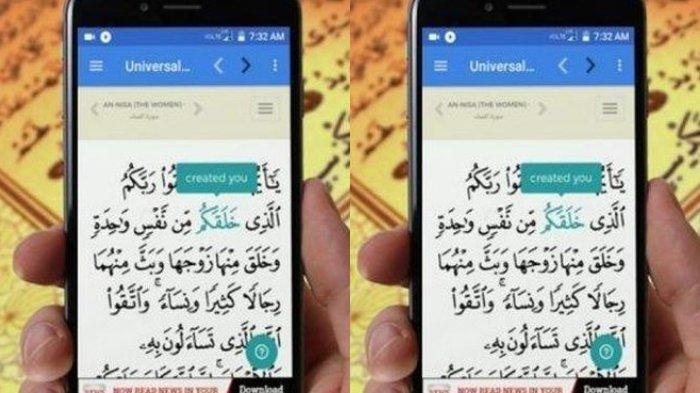 7:32 AM
Universal...
AN-NISA (THE WOMEN) -
سورة النساء
created you
رَبَّكُمُ
ٱلَّذِى خَلَقَكُم مِّن نَّفْسٍ وَٰحِدَةٍ
وَخَلَقَ مِنْهَا زَوْجَهَا وَبَثَّ مِنْهُمَا
رِجَالًا كَثِيرًا وَنِسَآءً ۚ وَٱتَّقُوا۟
ٱلَّذِى تَسَآءَلُونَ بِهِۦ
?
NOW READ NEWS IN YOUR
Download
7:32 AM
Universal...
AN-NISA (THE WOMEN) -
سورة النساء
created you
رَبَّكُمُ
ٱلَّذِى خَلَقَكُم مِّن نَّفْسٍ وَٰحِدَةٍ
وَخَلَقَ مِنْهَا زَوْجَهَا وَبَثَّ مِنْهُمَا
رِجَالًا كَثِيرًا وَنِسَآءً ۚ وَٱتَّقُوا۟
ٱلَّذِى تَسَآءَلُونَ بِهِۦ
?
NOW READ NEWS IN YOUR
Download